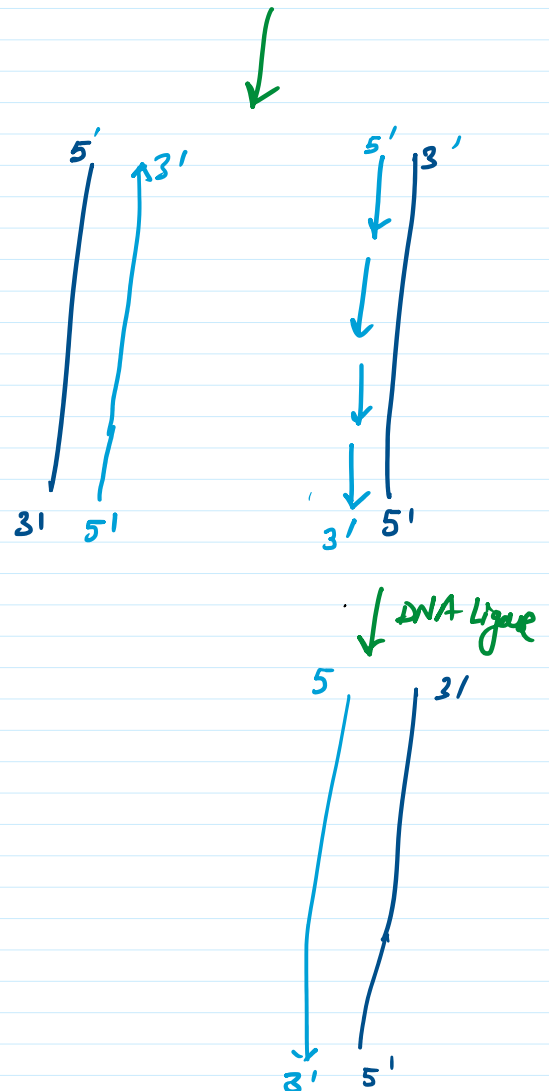 5' 3' 5' 3'
3' 5' 3' 5'
DNA Ligase
5 3'
3' 5'